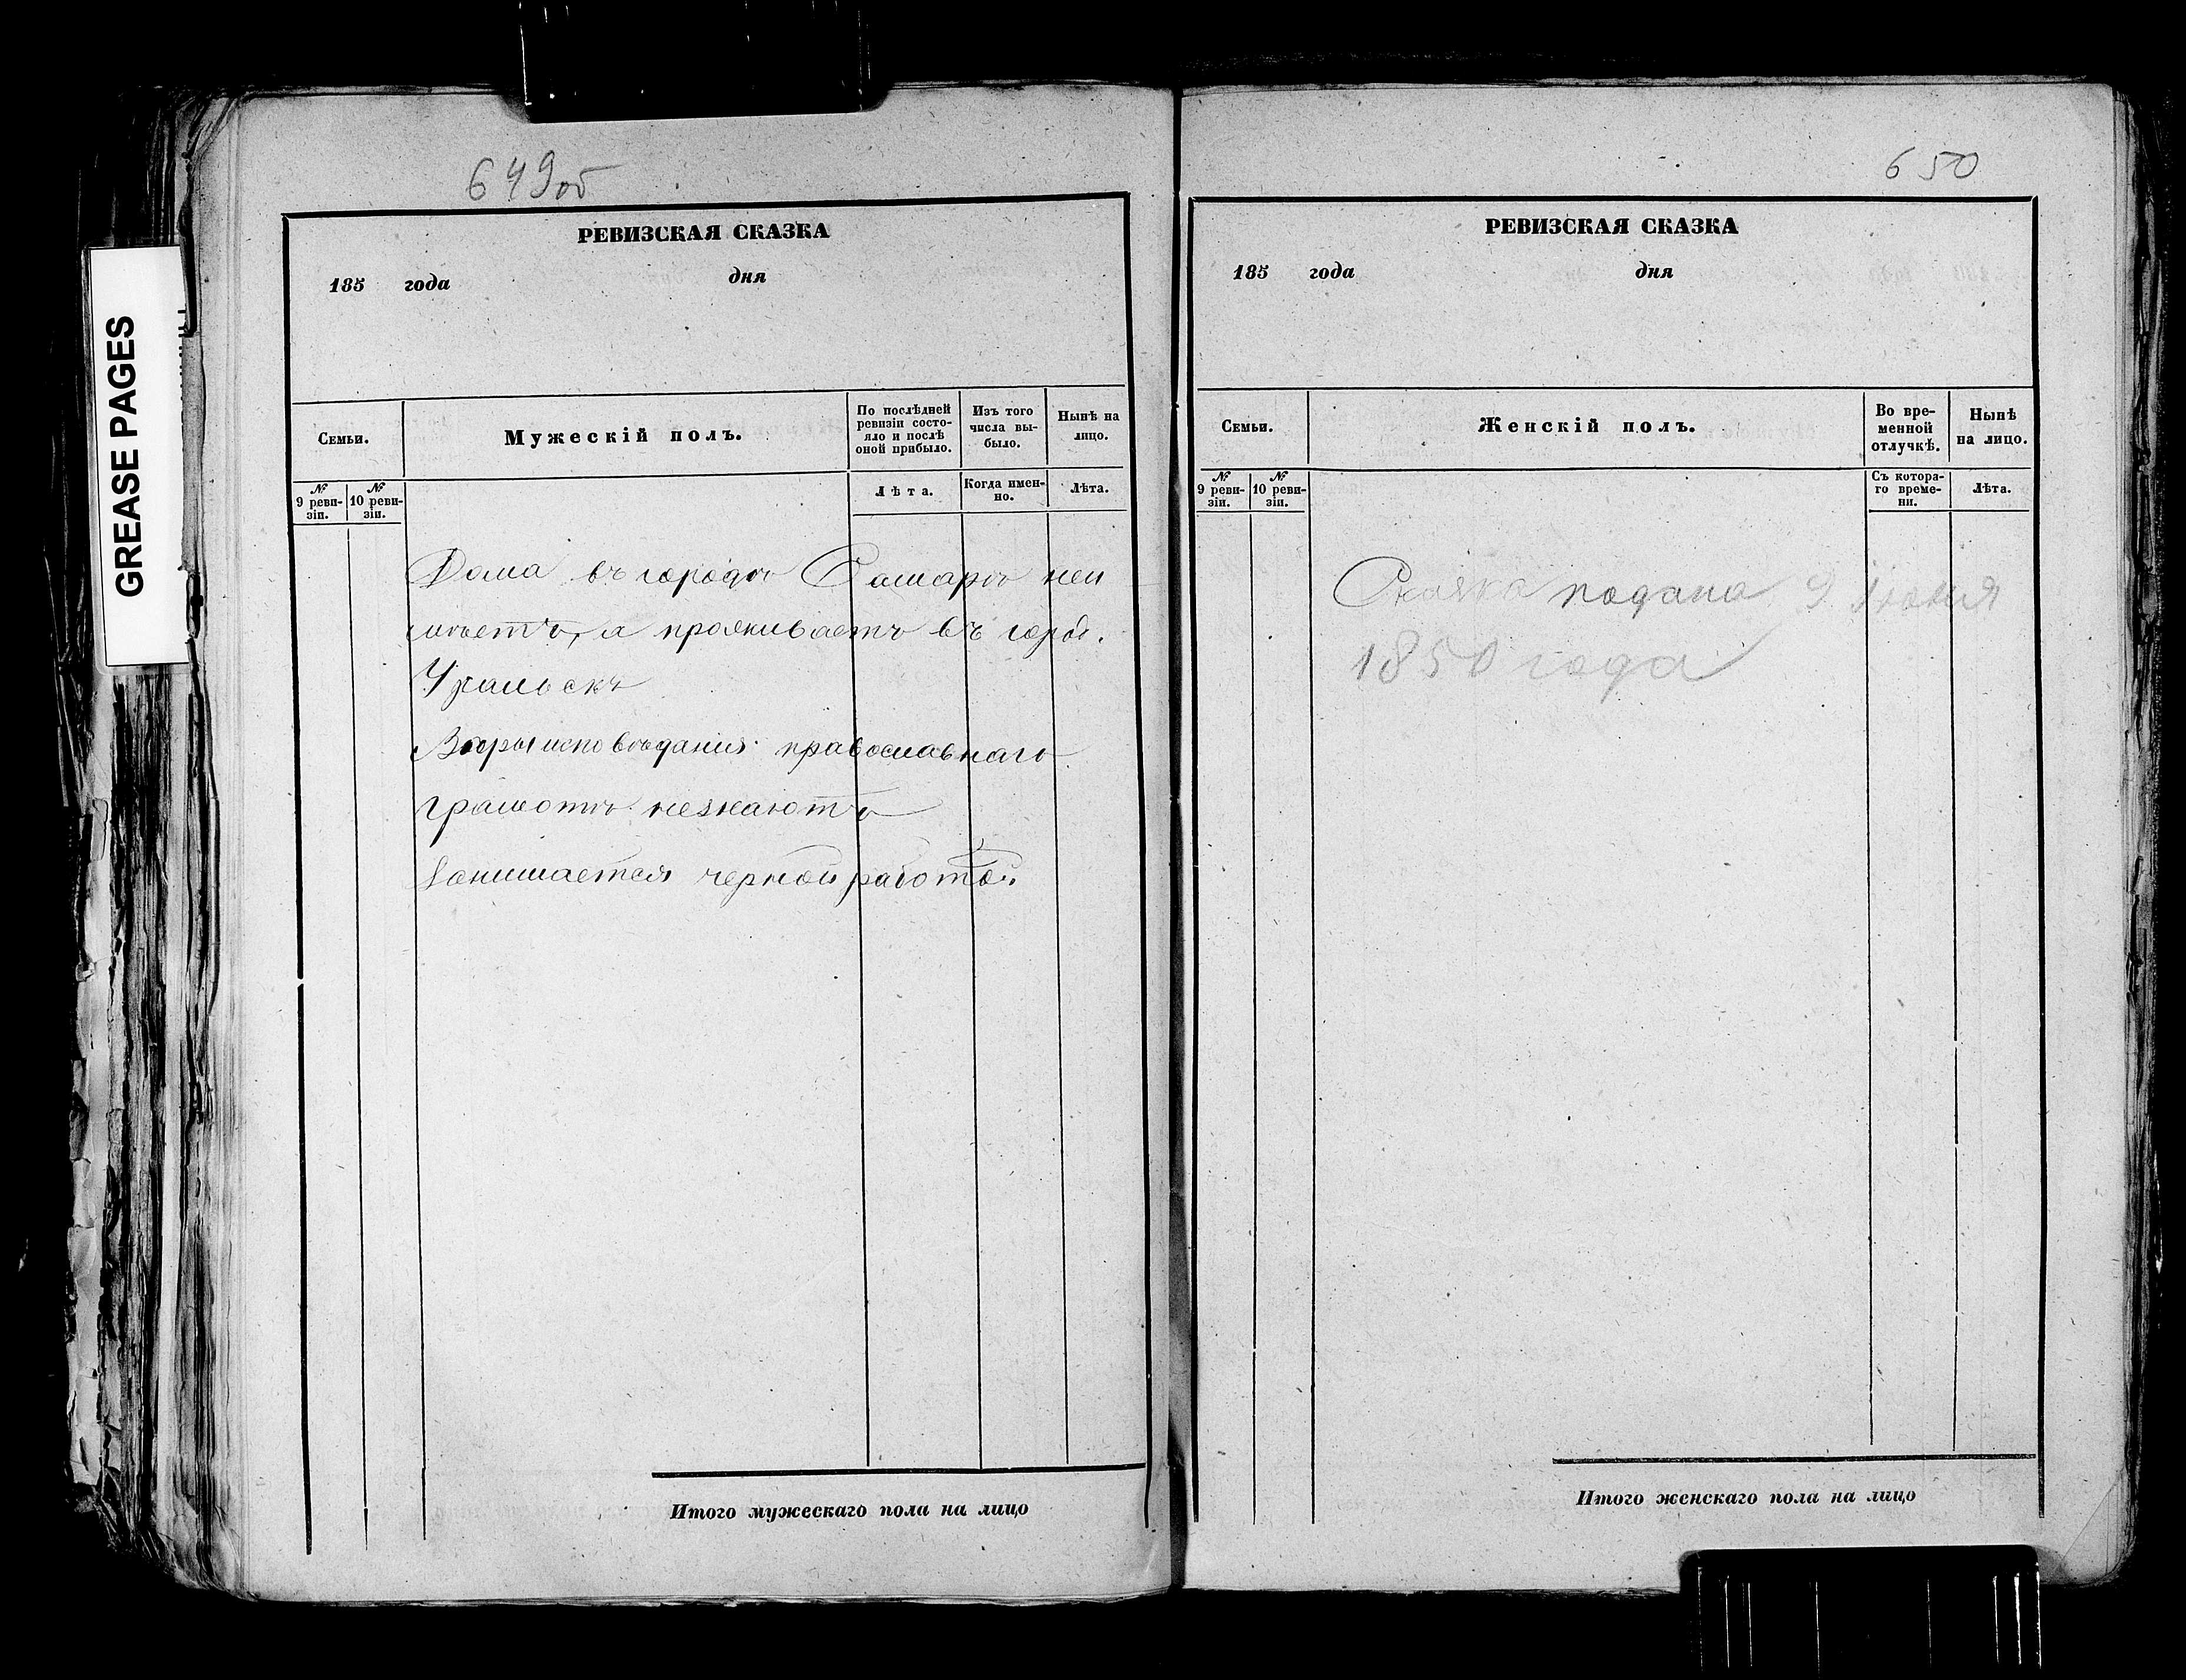 GREASE PAGES
649об
РЕВИЗСКАЯ СКАЗКА
185 года дня
Семьи.
Мужескій полъ.
По послѣдней ревизіи состо-
яло и послѣ
оной прибыло.
Изъ того
числа вы-
было.
Нынѣ на
лицо.
№
9 реви-
зіи.
№
10 реви-
зіи.
Лѣта.
Когда имен-
но.
Лѣта.
Дома въ городѣ Самарѣ неи
мѣетъ, а проживаетъ въ горо.
Уральскѣ
Вѣры исповѣданія православнаго
грамотѣ незнаютъ
Занимается черной работой.
Итого мужескаго пола на лицо
650
РЕВИЗСКАЯ СКАЗКА
185 года дня
Семьи.
Женскій полъ.
Во вре-
менной
отлучкѣ.
Нынѣ
на лицо.
№
9 реви-
зіи.
№
10 реви-
зіи.
Съ котора-
го време-
ни.
Лѣта.
Сказка подана 9 Июня
1850 года
Итого женскаго пола на лицо